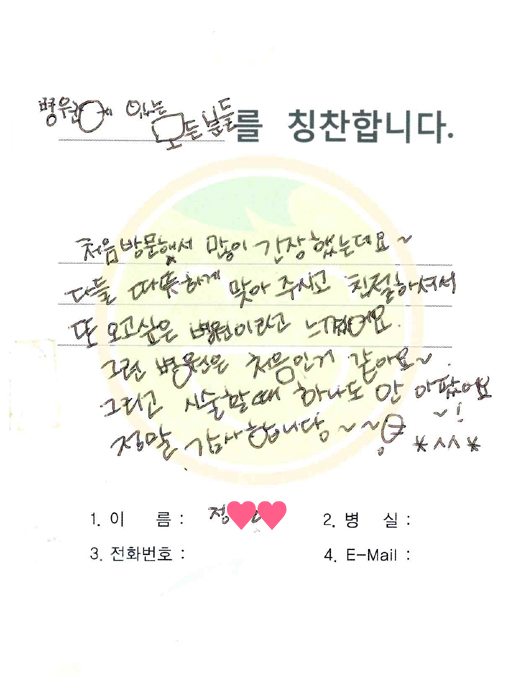 병원에 있는 모든분들를 칭찬합니다.
처음방문해서 많이 긴장했는데요~
다들 따뜻하게 맞아 주시고 친절하셔서
또 오고싶은 병원이라고 느꼈어요.
그런 병원은 처음인거 같아요~
그리고 시술할때 하나도 안 아팠어요~!
정말 감사합니당~~! *^^*
1. 이 름 : 정
2. 병 실 :
3. 전화번호 :
4. E-Mail :